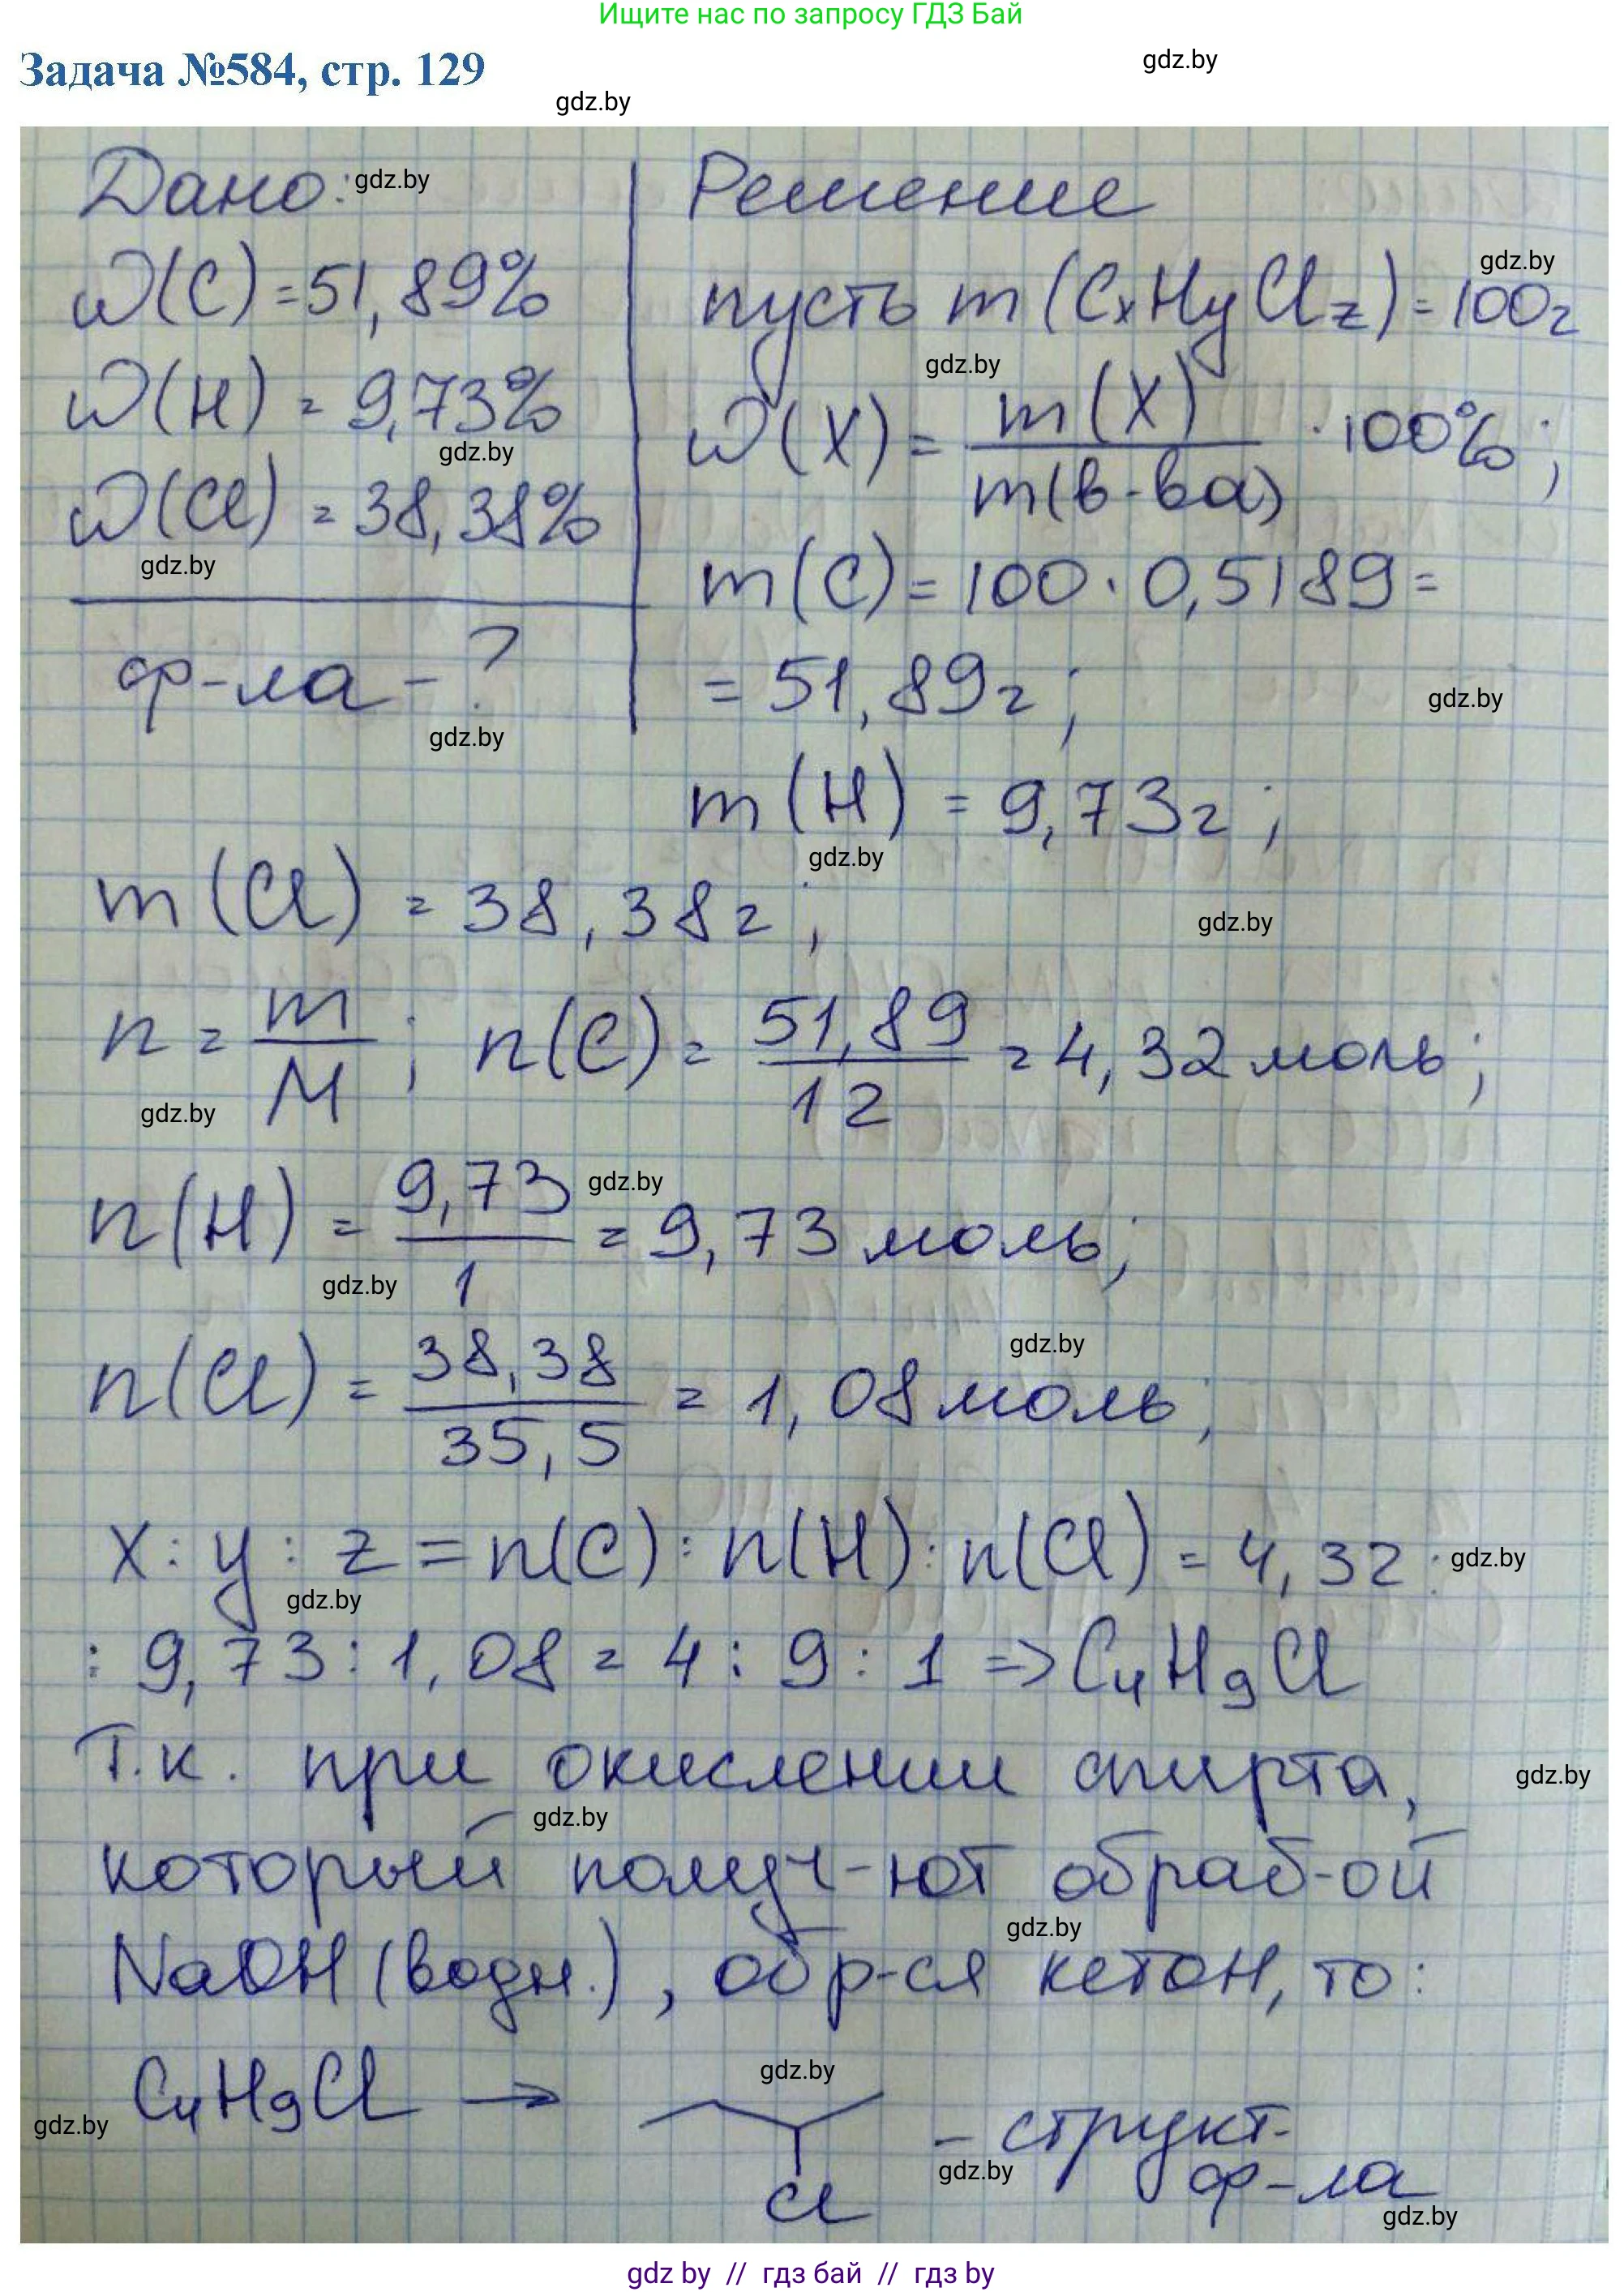 Ищите нас по запросу ГДЗ Бай
Задача №584, стр. 129
gdz.by
gdz.by
Дано: gdz.by
Решение
ω(C) = 51,89%
gdz.by
пусть m(CxHyClz) = 100г
ω(H) = 9,73%
gdz.by
ω(X) = m(X) / m(в-ва) · 100%;
gdz.by
ω(Cl) = 38,38%
gdz.by
m(C) = 100 · 0,5189 =
ф-ла - ?
= 51,89г;
gdz.by
gdz.by
m(H) = 9,73г;
gdz.by
m(Cl) = 38,38г;
gdz.by
n = m / M; n(C) = 51,89 / 12 = 4,32 моль;
gdz.by
n(H) = 9,73 / 1 = 9,73 моль;
gdz.by
gdz.by
n(Cl) = 38,38 / 35,5 = 1,08 моль;
gdz.by
x : y : z = n(C) : n(H) : n(Cl) = 4,32 :
gdz.by
gdz.by
: 9,73 : 1,08 = 4 : 9 : 1 => C4H9Cl
Т.к. при окислении спирта,
gdz.by
gdz.by
который получ-ют обраб-ой
gdz.by
NaOH (водн.), обр-ся кетон, то:
gdz.by
gdz.by
C4H9Cl →
Cl
- структ.
ф-ла
gdz.by
gdz.by
gdz by // гдз бай // гдз by